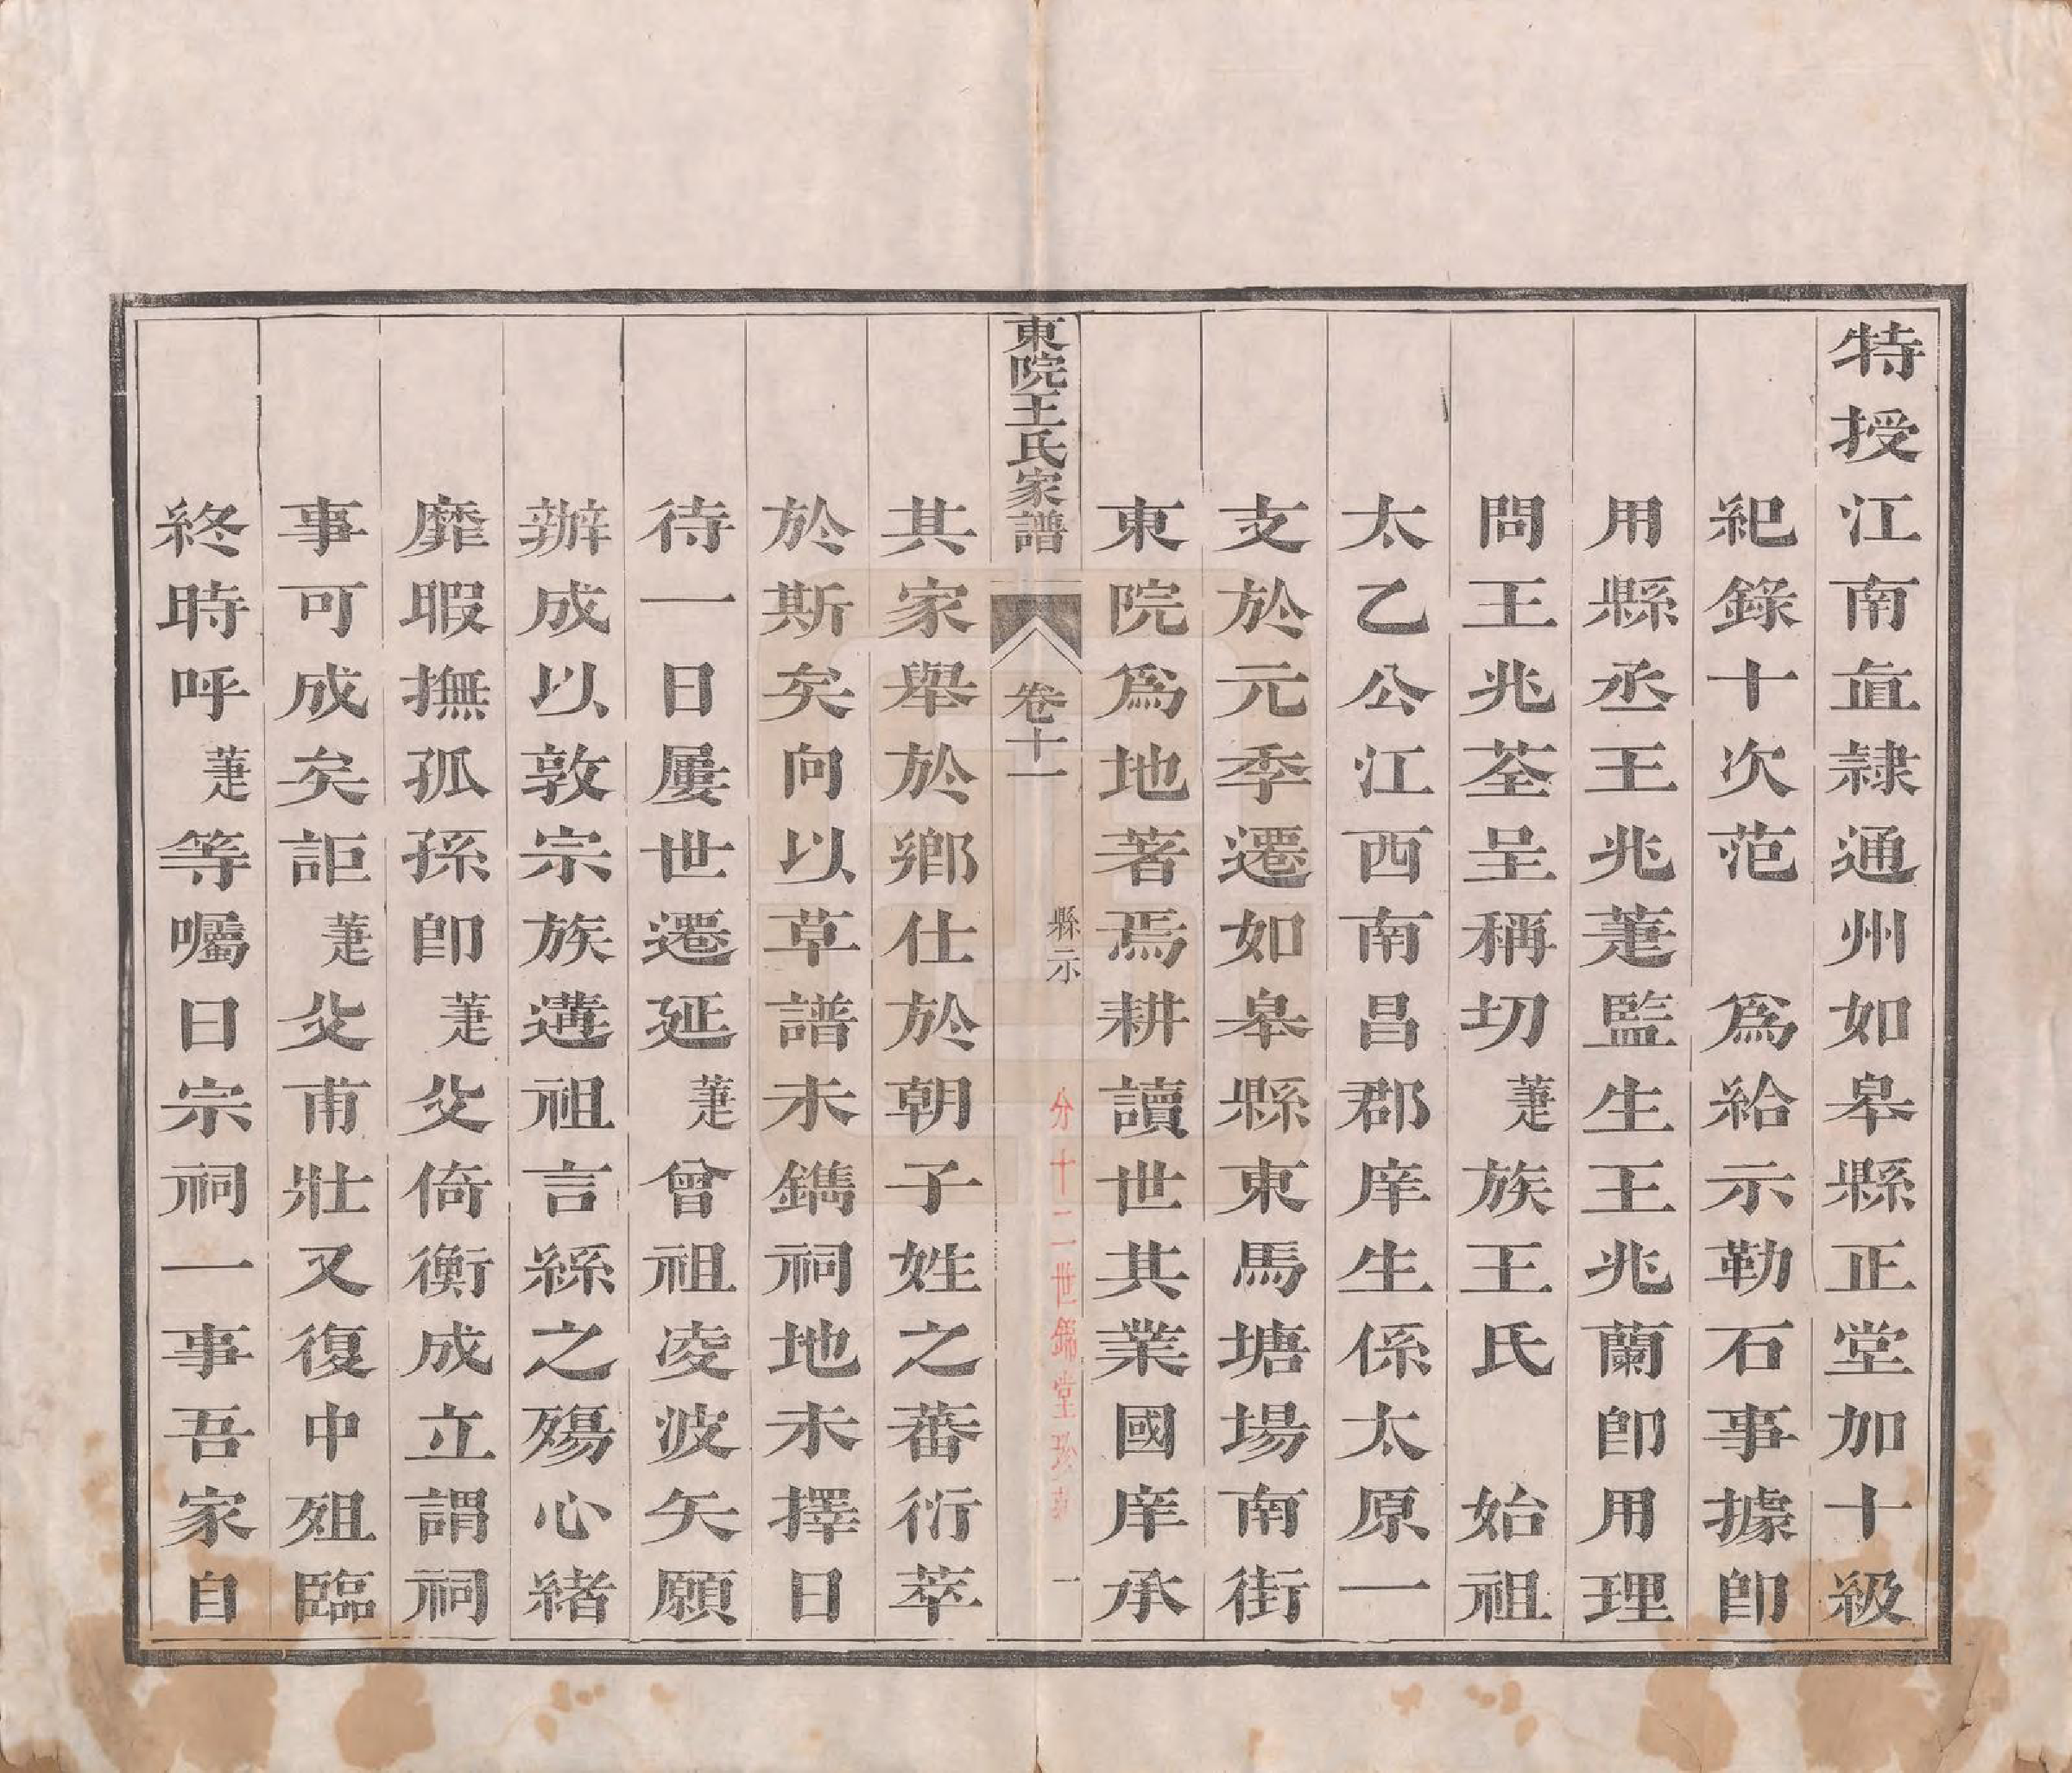 特授江南直隸通州如皋縣正堂加十級
紀錄十次范　爲給示勒石事據卽
用縣丞王兆萐監生王兆蘭卽用理
問王兆荃呈稱切萐族王氏　始祖
太乙公江西南昌郡庠生係太原一
支於元季遷如皋縣東馬塘場南街
東院爲地著焉耕讀世其業國庠承
東院王氏家譜　卷十一　縣示　一
分十二世錦堂珍藏
其家舉於鄉仕於朝子姓之蕃衍萃
於斯矣向以草譜未鐫祠地未擇日
待一日屢世遷延萐曾祖凌波矢願
辦成以敦宗族遘祖言緜之殤心緒
靡暇撫孤孫卽萐父倚衡成立謂祠
事可成矣詎萐父甫壯又復中殂臨
終時呼萐等囑曰宗祠一事吾家自